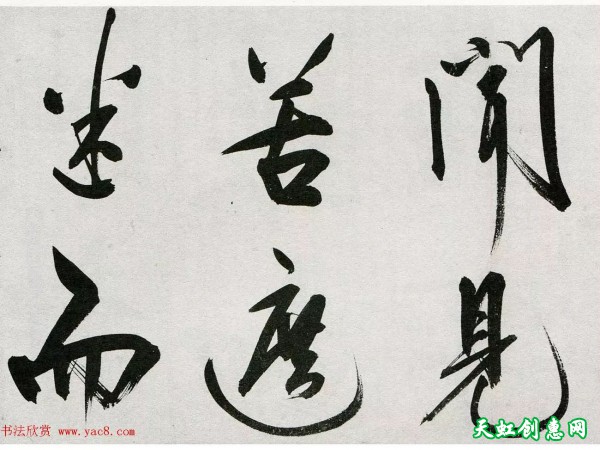 聞見
苦遮
迷而
书法欣赏 www.yac8.com
天虹创惠网